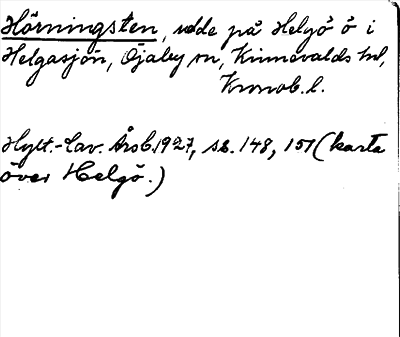 Hörningsten, udde på Helgö ö i
Helgasjön, Öjaby sn, Kinnevalds hd,
Kronob. l.
Hylt.-Cav. Årsb. 1927, ss. 148, 151 (karta
över Helgö.)